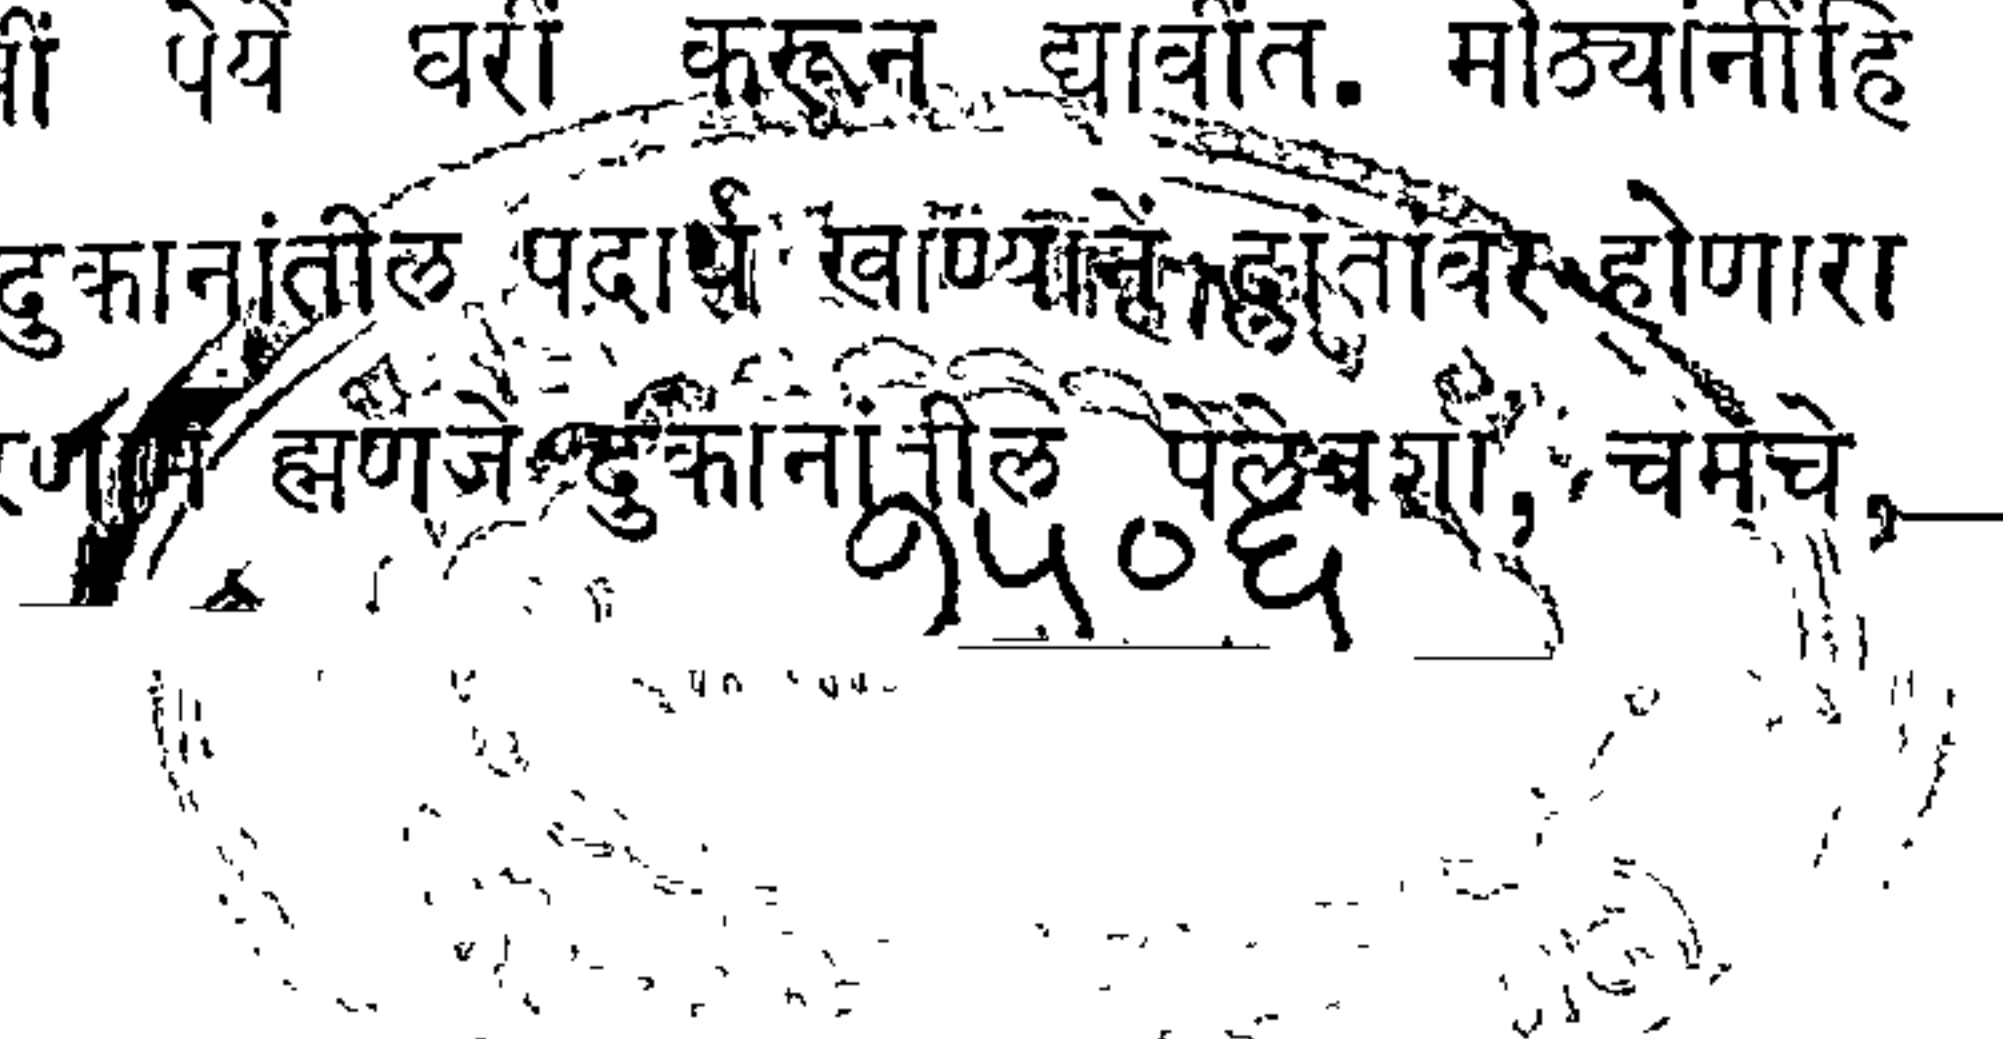 पेयें घरीं करून द्यावींत. मोठ्यांनींहि
दुकानांतील पदार्थ खाण्यानें दांतांवर होणारा
ह्मणजे दुकानांतील पेले बशा, चंमचे,
१५०६